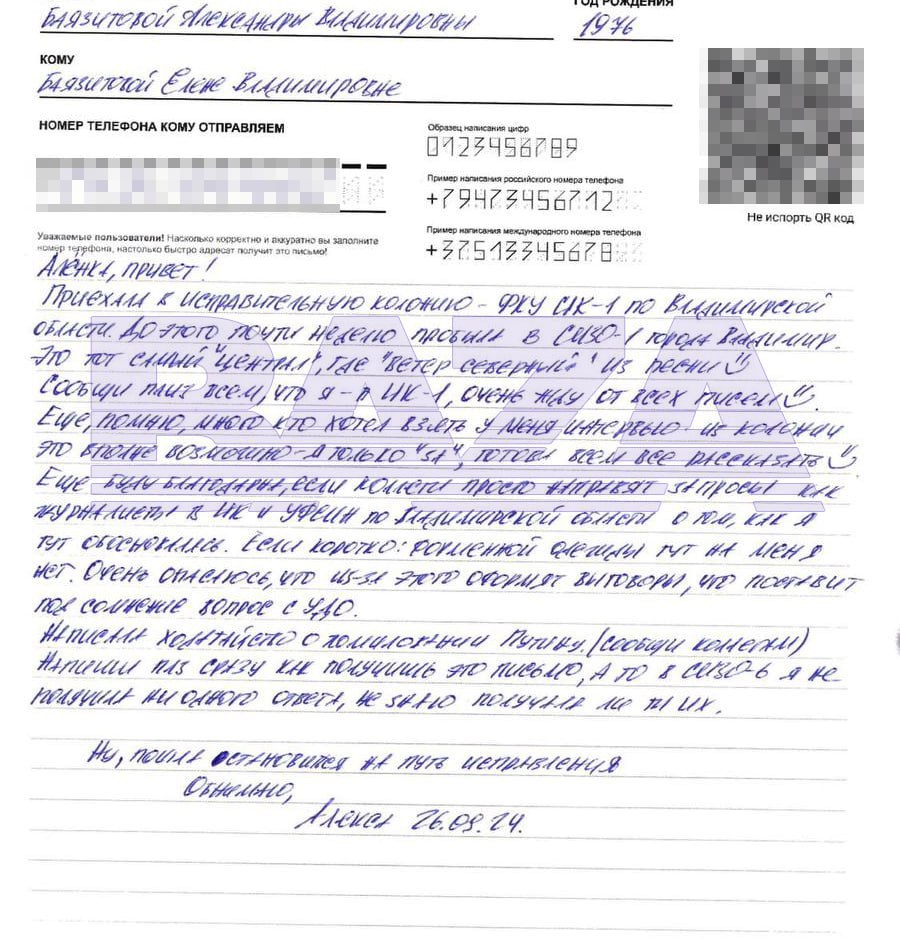 ГОД РОЖДЕНИЯ
Баязитовой Александры Владимировны 1976
КОМУ
Баязитовой Елене Владимировне
НОМЕР ТЕЛЕФОНА КОМУ ОТПРАВЛЯЕМ
Образец написания цифр
0123456789
Пример написания российского номера телефона
+79473456712
Пример написания международного номера телефона
+37513345678
Не испорть QR код
Уважаемые пользователи! Насколько корректно и аккуратно вы заполните
номер телефона, настолько быстро адресат получит это письмо!
Алёнка, привет!
Приехала в исправительную колонию - ФКУ ИК-1 по Владимирской
области. До этого почти неделю пробыла в СИЗО-1 города Владимир.
Это тот самый "централ", где "ветер северный" из песни
Сообщи плиз всем, что я - в ИК-1, очень жду от всех писем.
Еще, помню, много кто хотел взять у меня интервью из колонии
это вполне возможно - я только "за", готова всем все рассказать
Еще буду благодарна, если коллеги просто направят запросы как
журналисты в ИК и УФСИН по Владимирской области о том, как я
тут обосновалась. Если коротко: форменной одежды тут на меня
нет. Очень опасаюсь, что из-за этого оформят выговоры, что поставит
под сомнение вопрос с УДО.
Написала ходатайство о помиловании Путину. (сообщи коллегам)
Напиши плз сразу как получишь это письмо, а то в СИЗО-6 я не
получила ни одного ответа, не знаю получала ли ты их.
Ну, пошла становится на путь исправления
Обнимаю,
Алекса 26.09.24.
BAZA